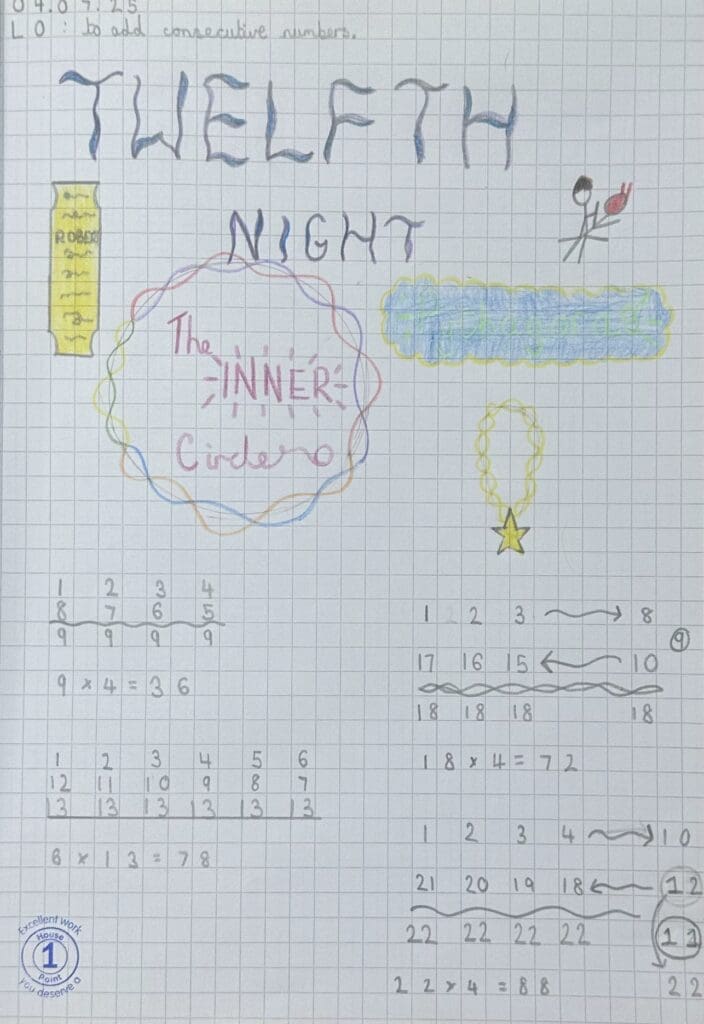 04.07.25
LO: to add consecutive numbers.
TWELFTH
NIGHT
The
INNER
Circle
1 2 3 4
8 7 6 5
9 9 9 9
9 × 4 = 36
1 2 3 4 5 6
12 11 10 9 8 7
13 13 13 13 13 13
6 × 13 = 78
1 2 3 → 8
9
17 16 15 ← 10
18 18 18 18
18 × 4 = 72
1 2 3 4 → 10
21 20 19 18 ← 12
22 22 22 22 11
22 × 4 = 88 22
Excellent work
House
1
Point
you deserve a